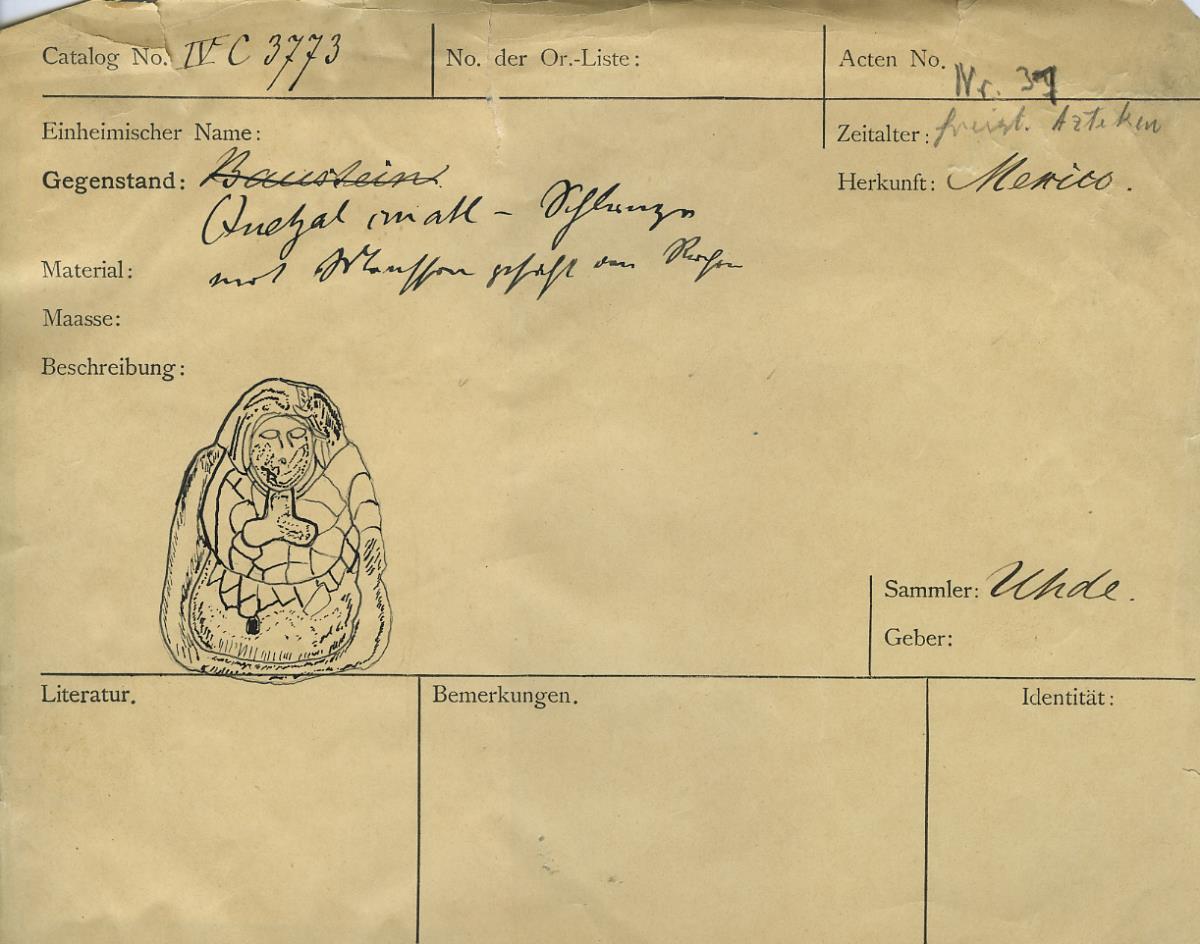 Catalog No. IV C 3773
No. der Or.-Liste:
Acten No.
Nr. 37
Einheimischer Name:
Zeitalter: Azteken
Gegenstand: Baustein
Herkunft: Mexico.
Quetzalcoatl - Schlange
Material:
mit Menschengesicht im Rachen
Maasse:
Beschreibung:
Sammler: Uhde.
Geber:
Literatur.
Bemerkungen.
Identität: